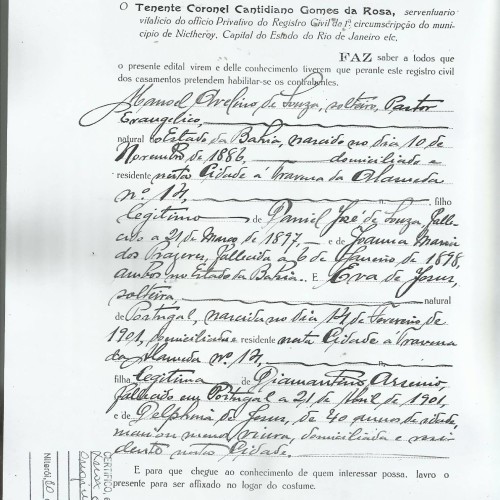 O Tenente Coronel Cantidiano Gomes da Rosa, serventuario
vitalicio do officio Privativo do Registro Civil da 1ª circumscripção do muni-
cipio de Nictheroy, Capital do Estado do Rio de Janeiro etc.
FAZ saber a todos que
o presente edital virem e delle conhecimento tiverem que perante este registro civil
dos casamentos pretendem habilitar-se os contrahentes.
Manoel Avelino de Souza, solteiro, Pastor
Evangelico,
natural do Estado da Bahia, nascido no dia 10 de
Novembro de 1886, domiciliado e
residente nesta Cidade á Travessa da Alameda
nº. 14, filho
legitimo de Daniel José de Souza, falle-
cido a 21 de Março de 1897, e de Joanna Maria
dos Prazeres, fallecida a 6 de Janeiro de 1898,
ambos no Estado da Bahia. E Eva de Jesus,
solteira, natural
de Portugal, nascida no dia 14 de Fevereiro de
1901, domiciliada e residente nesta Cidade á Travessa
da Alameda nº. 14,
filha legitima de Diamantino Arsenio,
fallecido em Portugal a 21 de Abril de 1901,
e de Delphina de Jesus, de 40 annos de idade,
viuva, domiciliada e resi-
dente nesta Cidade.
E para que chegue ao conhecimento de quem interessar possa. lavro o
presente para ser affixado no logar do costume.
CERTIFICO,
Niterói, 20